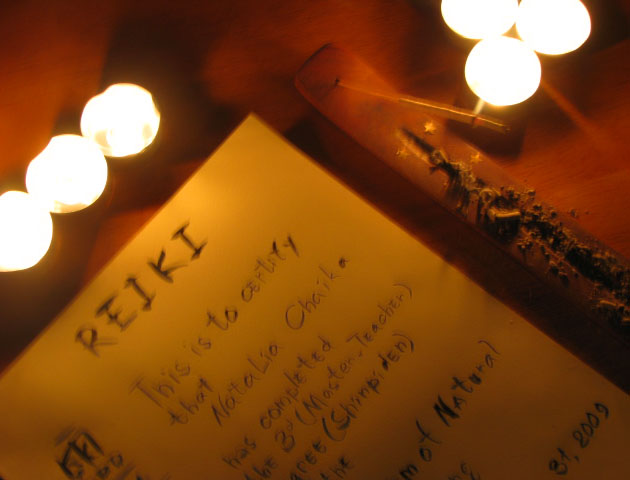 REIKI
This is to certify
that Natalia Chaika
has completed
the 3d (Master-Teacher)
(Shinpiden)
the
of Natural
31, 2009